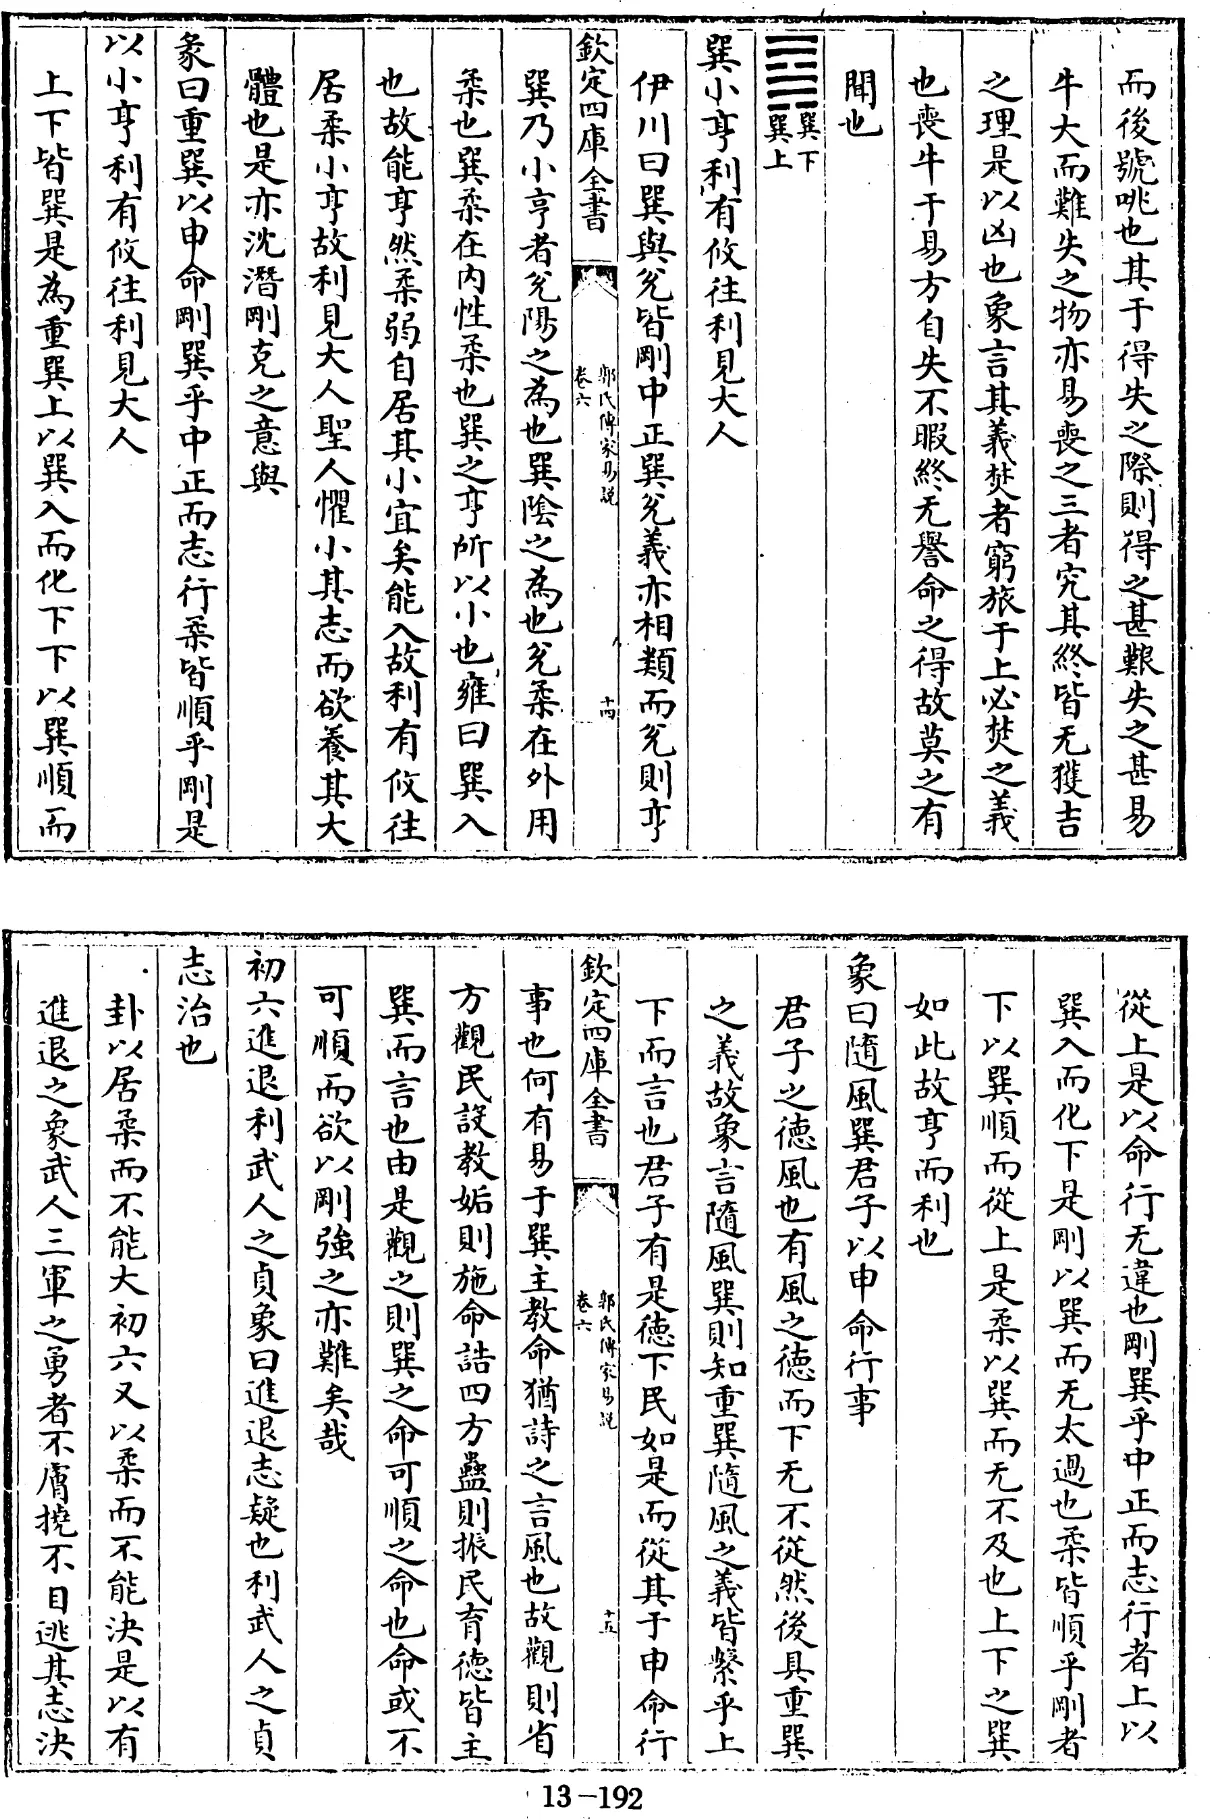 而後號咷也其于得失之際則得之甚艱失之甚易
牛大而難失之物亦易喪之三者究其終皆无獲吉
之理是以凶也象言其義焚者窮旅于上必焚之義
也喪牛于易方自失不暇終无譽命之得故莫之有
聞也
巽下
巽上
巽小亨利有攸往利見大人
伊川曰巽與兌皆剛中正巽兌義亦相類而兌則亨
欽定四庫全書
郭氏傳家易說
卷六
十四
巽乃小亨者兌陽之為也巽陰之為也兌柔在外用
柔也巽柔在内性柔也巽之亨所以小也雍曰巽入
也故能亨然柔弱自居其小宜矣能入故利有攸往
居柔小亨故利見大人聖人懼小其志而欲養其大
體也是亦沈潛剛克之意與
彖曰重巽以申命剛巽乎中正而志行柔皆順乎剛是
以小亨利有攸往利見大人
上下皆巽是為重巽上以巽入而化下下以巽順而
從上是以命行无違也剛巽乎中正而志行者上以
巽入而化下是剛以巽而无太過也柔皆順乎剛者
下以巽順而從上是柔以巽而无不及也上下之巽
如此故亨而利也
象曰隨風巽君子以申命行事
君子之德風也有風之德而下无不從然後具重巽
之義故象言隨風巽則知重巽隨風之義皆繫乎上
下而言也君子有是德下民如是而從其于申命行
欽定四庫全書
郭氏傳家易說
卷六
十五
事也何有易于巽主教命猶詩之言風也故觀則省
方觀民設教姤則施命誥四方蠱則振民育德皆主
巽而言也由是觀之則巽之命可順之命也命或不
可順而欲以剛強之亦難矣哉
初六進退利武人之貞象曰進退志疑也利武人之貞
志治也
卦以居柔而不能大初六又以柔而不能決是以有
進退之象武人三軍之勇者不膚撓不目逃其志決
13-192